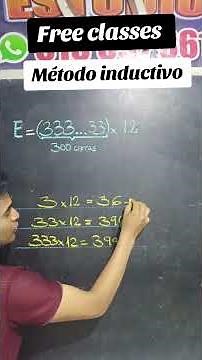 Free classes
Método inductivo
E = (333...33) x 12
300 CIFRAS
3 x 12 = 36
33 x 12 = 39
333 x 12 = 399